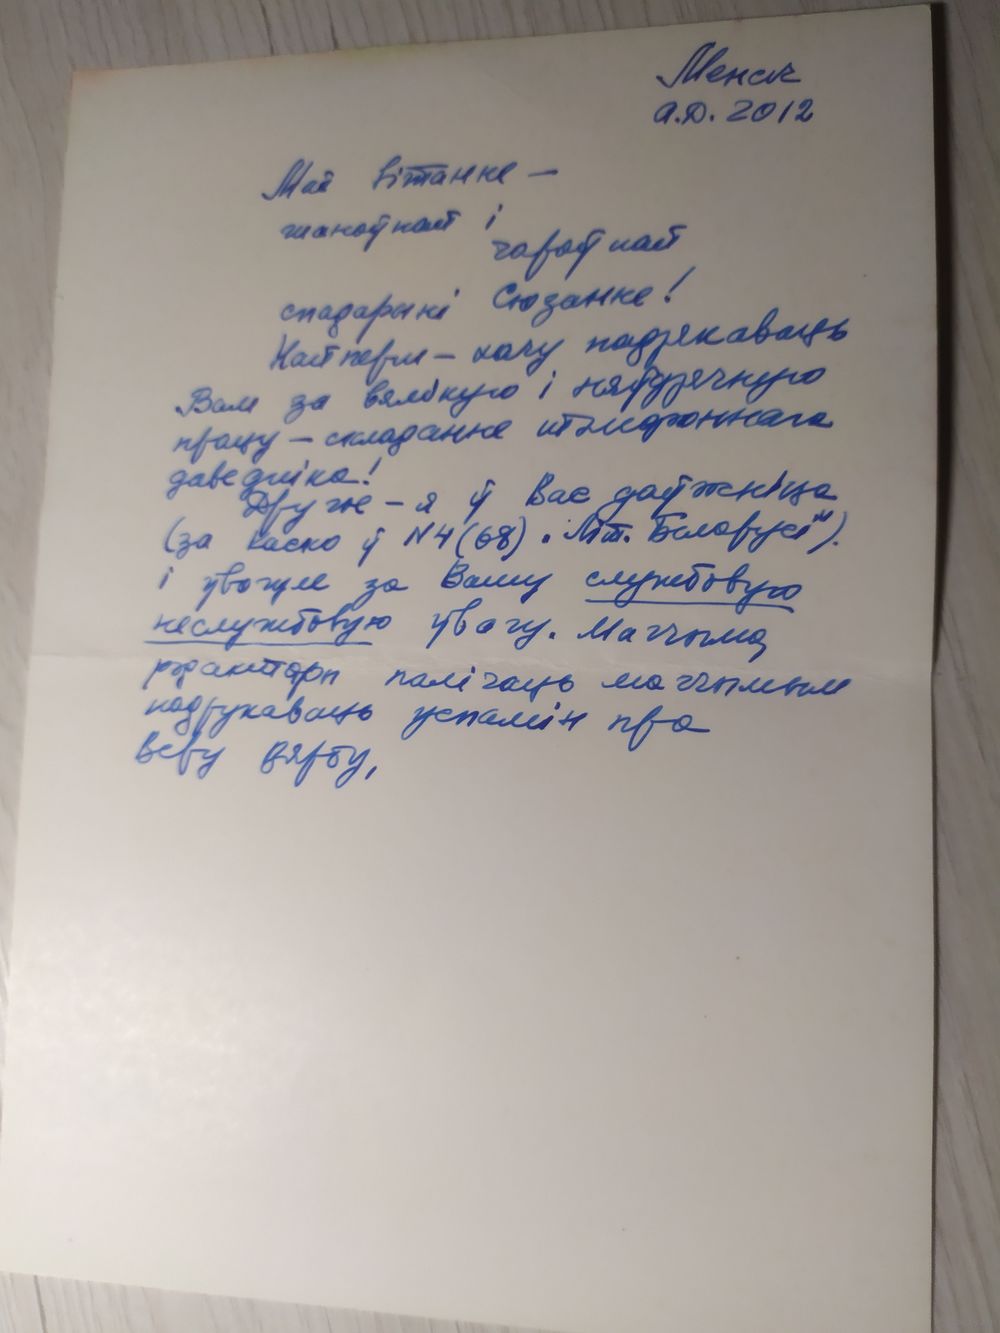 Менск
A.D. 2012
Маё вітанне –
шаноўнай і
чароўнай
спадарыні Сюзанне!
Найперш – хачу падзякаваць
Вам за вялікую і няўдзячную
працу – складанне тэлефоннага
даведніка!
Другое – я ў Вас даўжніца
(за ў N4 (68) „Літ. Беларусі“).
і ўвогуле за Вашу службовую
неслужбовую ўвагу. Магчыма,
рэдактары палічаць магчымым
надрукаваць успамін пра
Веру Вярбу,